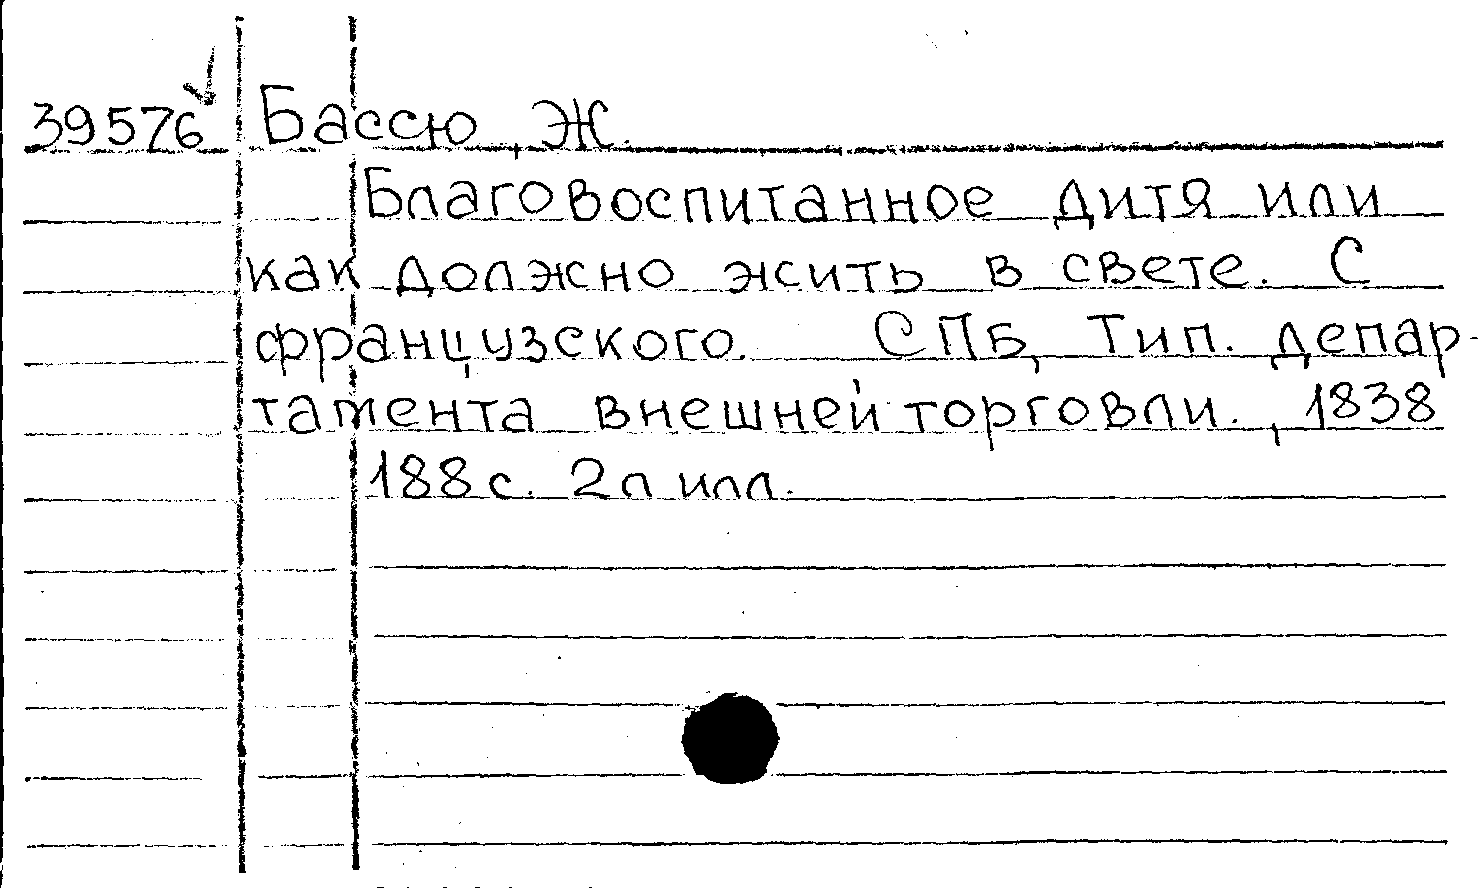 39576 Бассю, Ж.
Благовоспитанное дитя или
как должно жить в свете. С
французского. СПБ, Тип. депар-
тамента внешней торговли., 1838
188 с. 2 л илл.